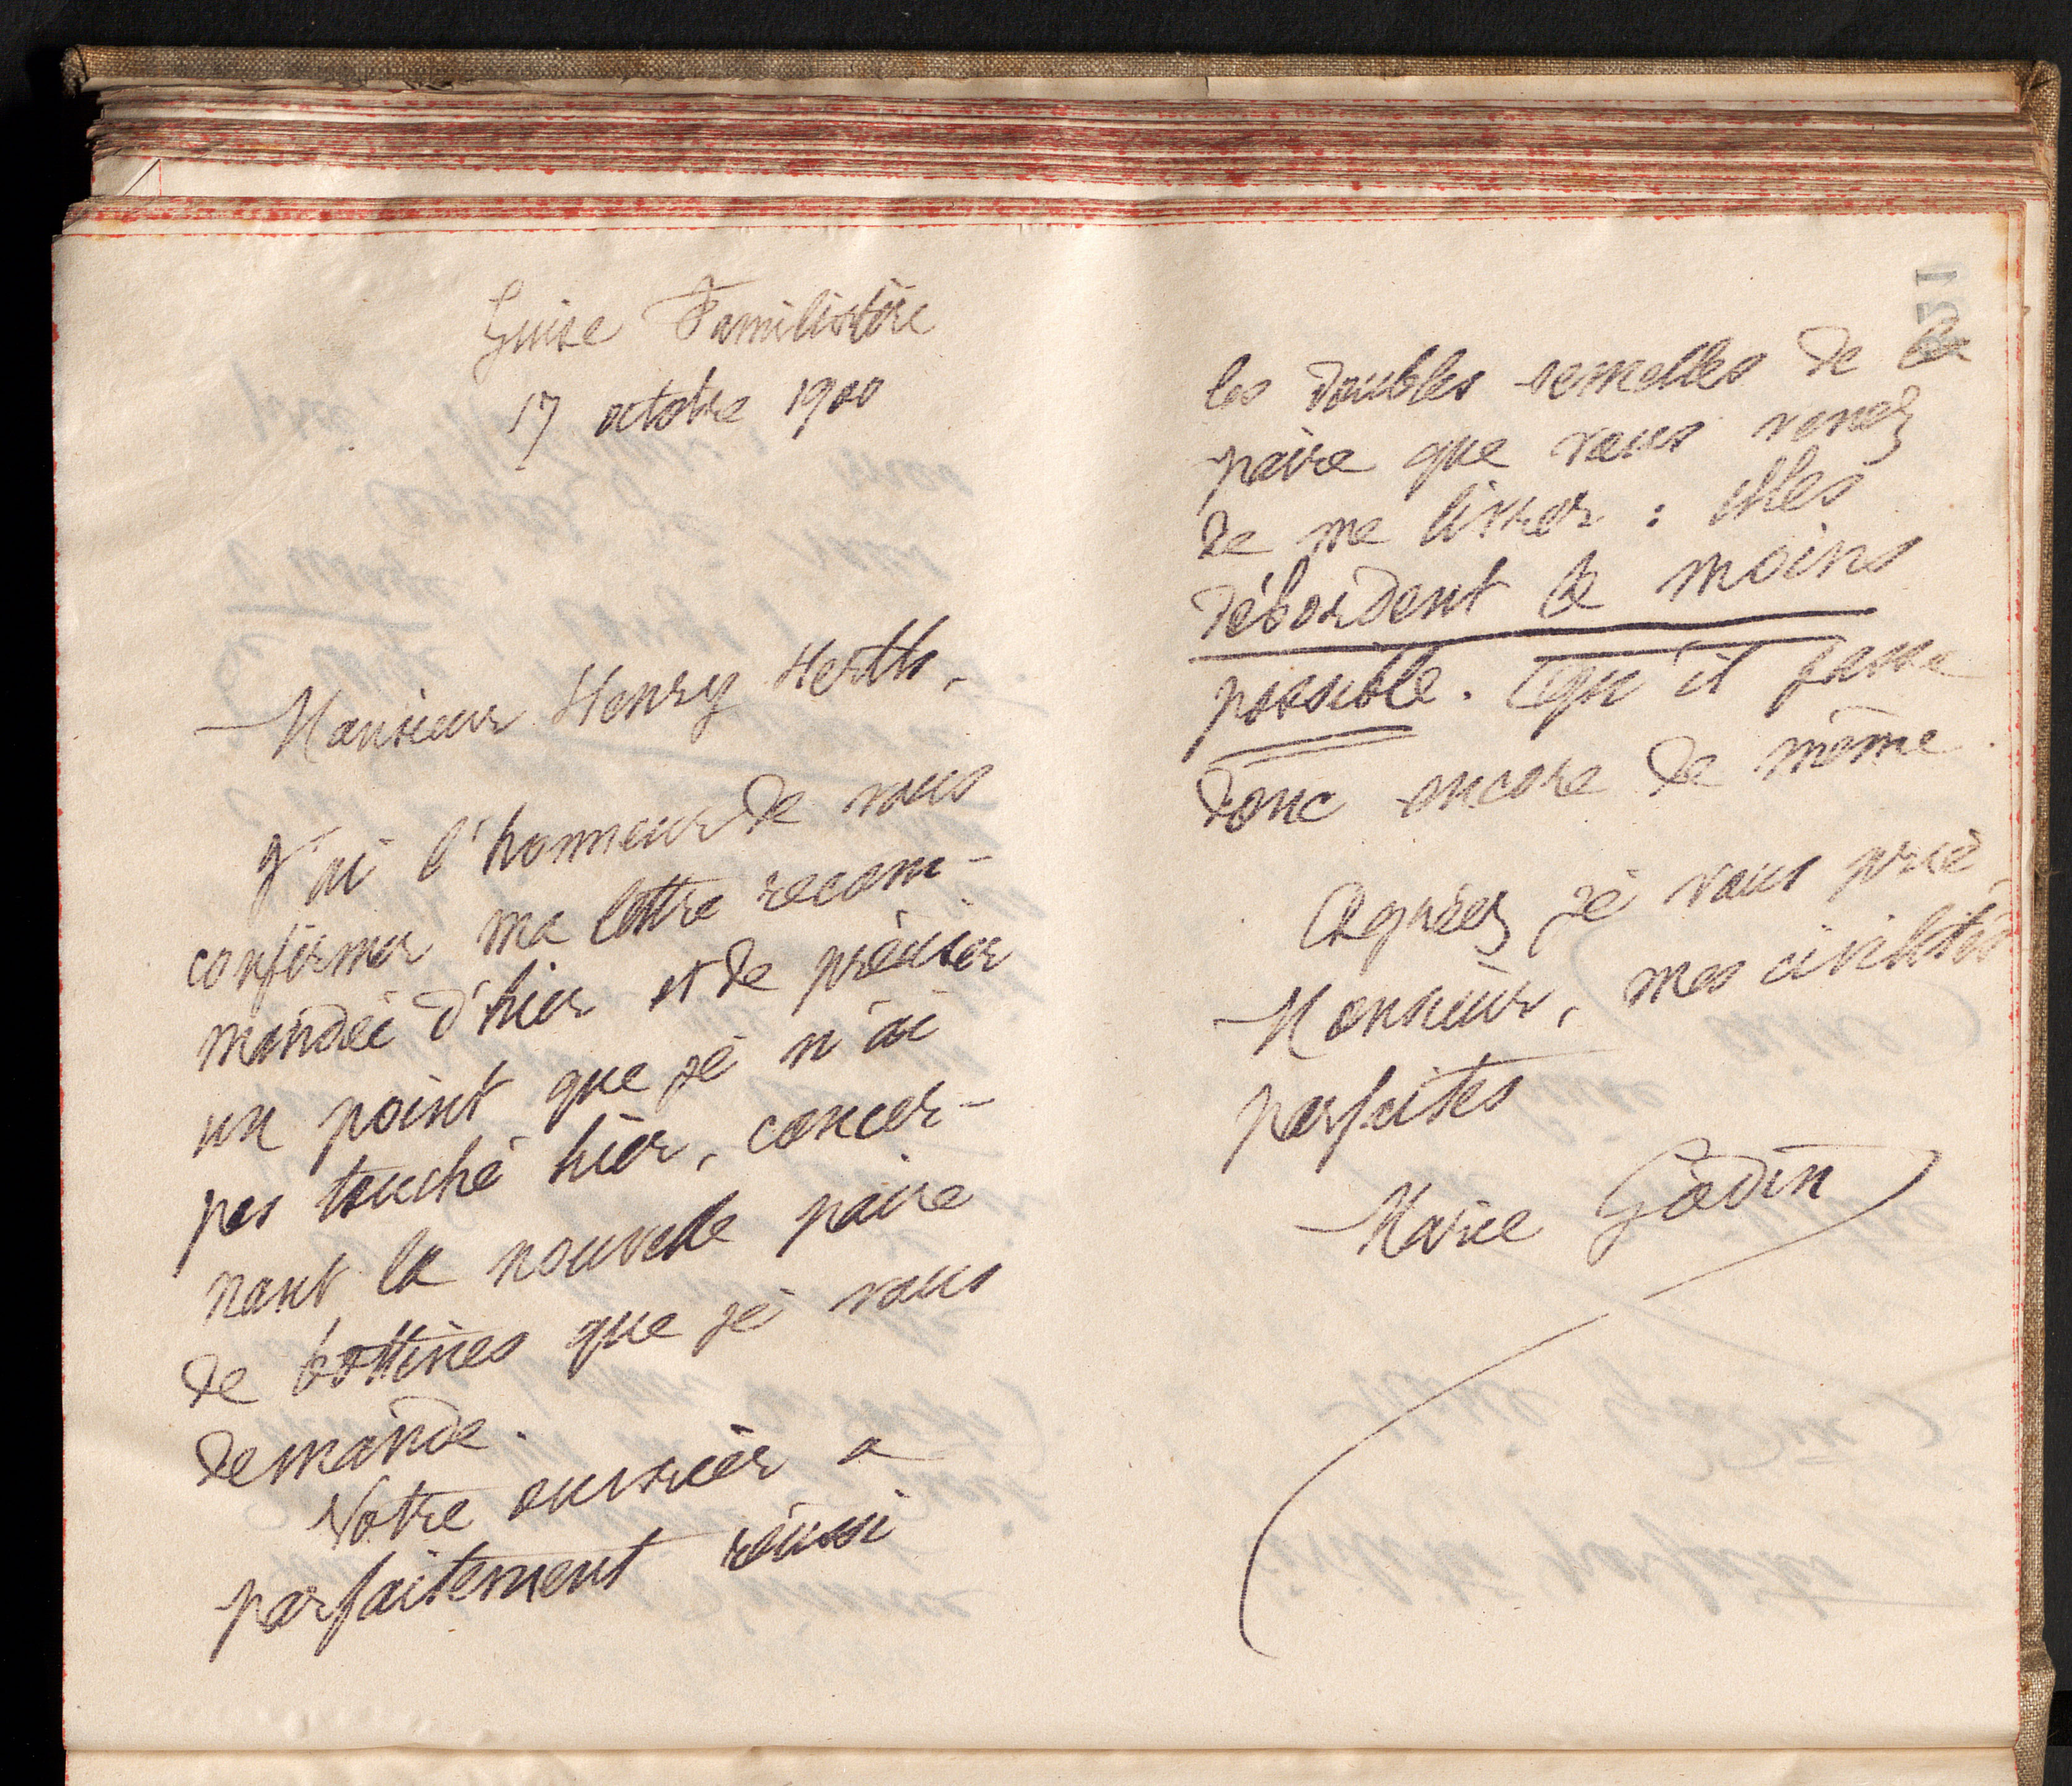 Guise Familistère
17 octobre 1900
Monsieur Henry Herth,
J'ai l'honneur de vous
confirmer ma lettre recom-
mandée d'hier et de préciser
un point que je n'ai
pas touché hier, concer-
nant la nouvelle paire
de bottines que je vous
demande.
Votre ouvrier a
parfaitement réussi
les doubles semelles de la
paire que vous venez
de me livrer : elles
débordent le moins
possible. Qu'il fasse
donc encore de même.
Agréez je vous prie,
Monsieur, mes civilités
parfaites
Marie Godin